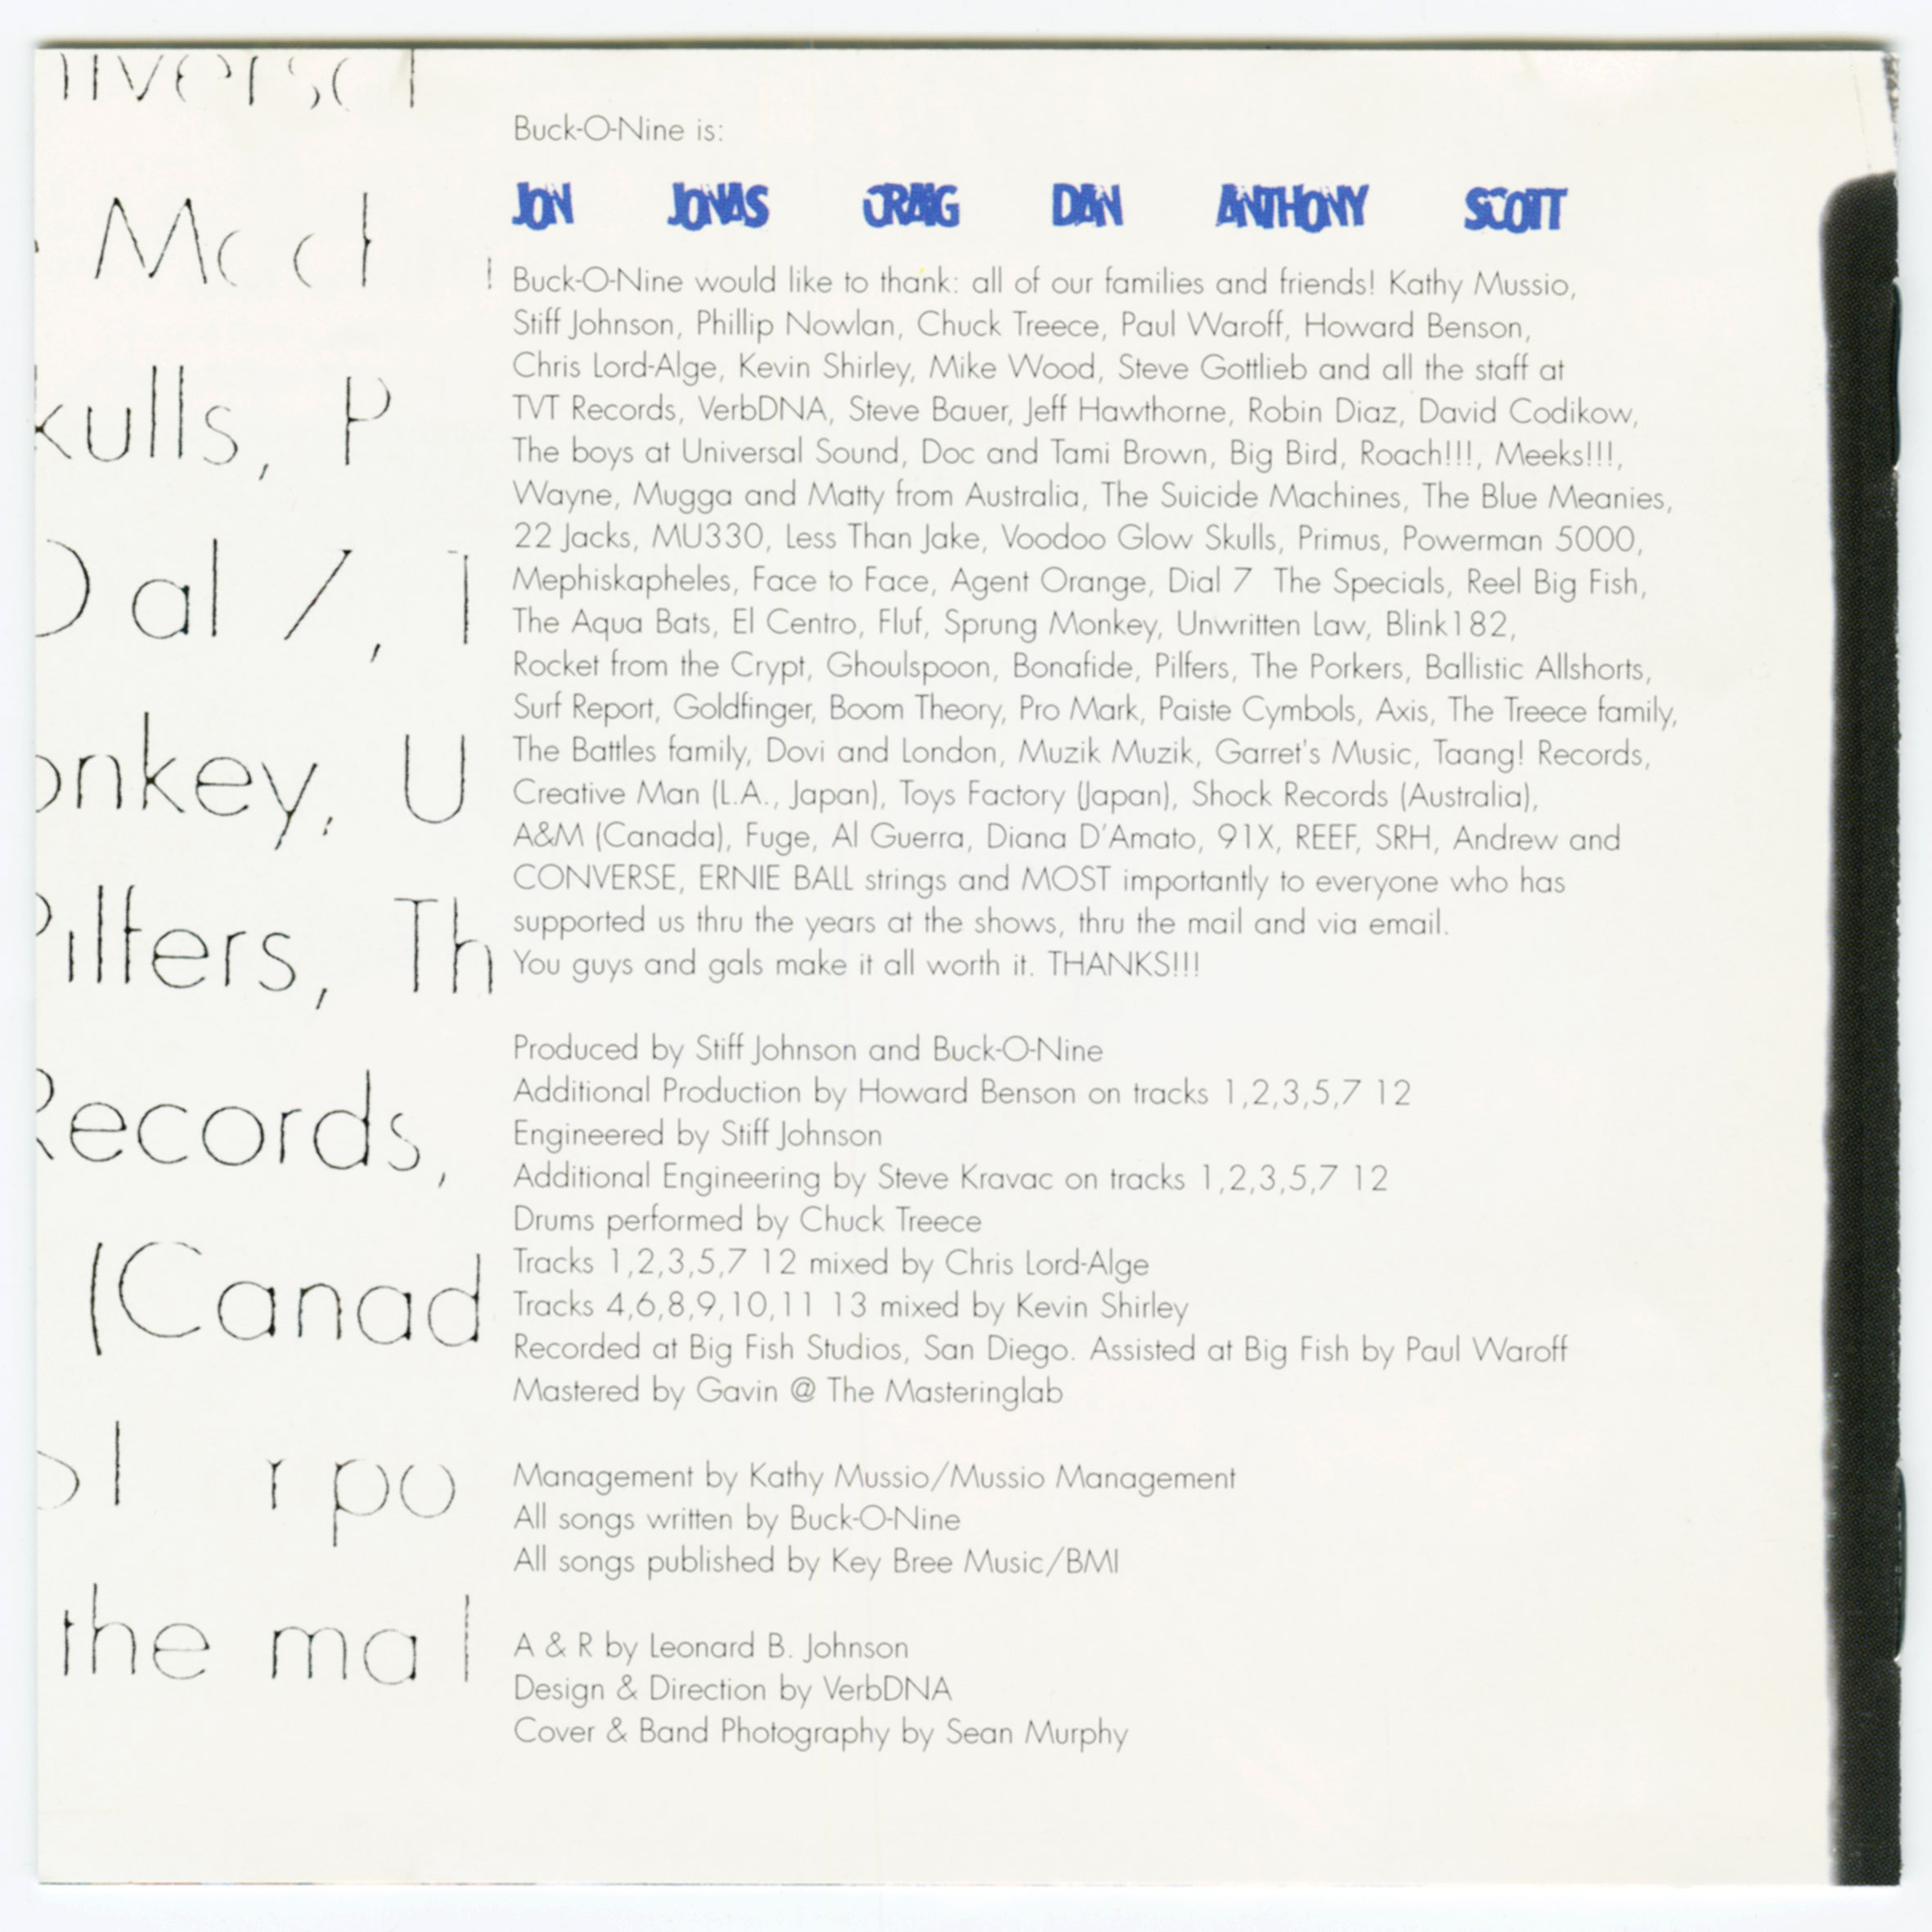 niversal
Buck-O-Nine is:
JON JONAS CRAIG DAN ANTHONY SCOTT
Buck-O-Nine would like to thank: all of our families and friends! Kathy Mussio,
Stiff Johnson, Phillip Nowlan, Chuck Treece, Paul Waroff, Howard Benson,
Chris Lord-Alge, Kevin Shirley, Mike Wood, Steve Gottlieb and all the staff at
TVT Records, VerbDNA, Steve Bauer, Jeff Hawthorne, Robin Diaz, David Codikow,
The boys at Universal Sound, Doc and Tami Brown, Big Bird, Roach!!!, Meeks!!!,
Wayne, Mugga and Matty from Australia, The Suicide Machines, The Blue Meanies,
22 Jacks, MU330, Less Than Jake, Voodoo Glow Skulls, Primus, Powerman 5000,
Mephiskapheles, Face to Face, Agent Orange, Dial 7 The Specials, Reel Big Fish,
The Aqua Bats, El Centro, Fluf, Sprung Monkey, Unwritten Law, Blink182,
Rocket from the Crypt, Ghoulspoon, Bonafide, Pilfers, The Porkers, Ballistic Allshorts,
Surf Report, Goldfinger, Boom Theory, Pro Mark, Paiste Cymbols, Axis, The Treece family,
The Battles family, Dovi and London, Muzik Muzik, Garret's Music, Taang! Records,
Creative Man (L.A., Japan), Toys Factory (Japan), Shock Records (Australia),
A&M (Canada), Fuge, Al Guerra, Diana D'Amato, 91X, REEF, SRH, Andrew and
CONVERSE, ERNIE BALL strings and MOST importantly to everyone who has
supported us thru the years at the shows, thru the mail and via email.
You guys and gals make it all worth it. THANKS!!!
Produced by Stiff Johnson and Buck-O-Nine
Additional Production by Howard Benson on tracks 1,2,3,5,7 12
Engineered by Stiff Johnson
Additional Engineering by Steve Kravac on tracks 1,2,3,5,7 12
Drums performed by Chuck Treece
Tracks 1,2,3,5,7 12 mixed by Chris Lord-Alge
Tracks 4,6,8,9,10,11 13 mixed by Kevin Shirley
Recorded at Big Fish Studios, San Diego. Assisted at Big Fish by Paul Waroff
Mastered by Gavin @ The Masteringlab
Management by Kathy Mussio/Mussio Management
All songs written by Buck-O-Nine
All songs published by Key Bree Music/BMI
A & R by Leonard B. Johnson
Design & Direction by VerbDNA
Cover & Band Photography by Sean Murphy
kulls, P
onkey, U
Pilfers, Th
Records,
(Canad
the ma l